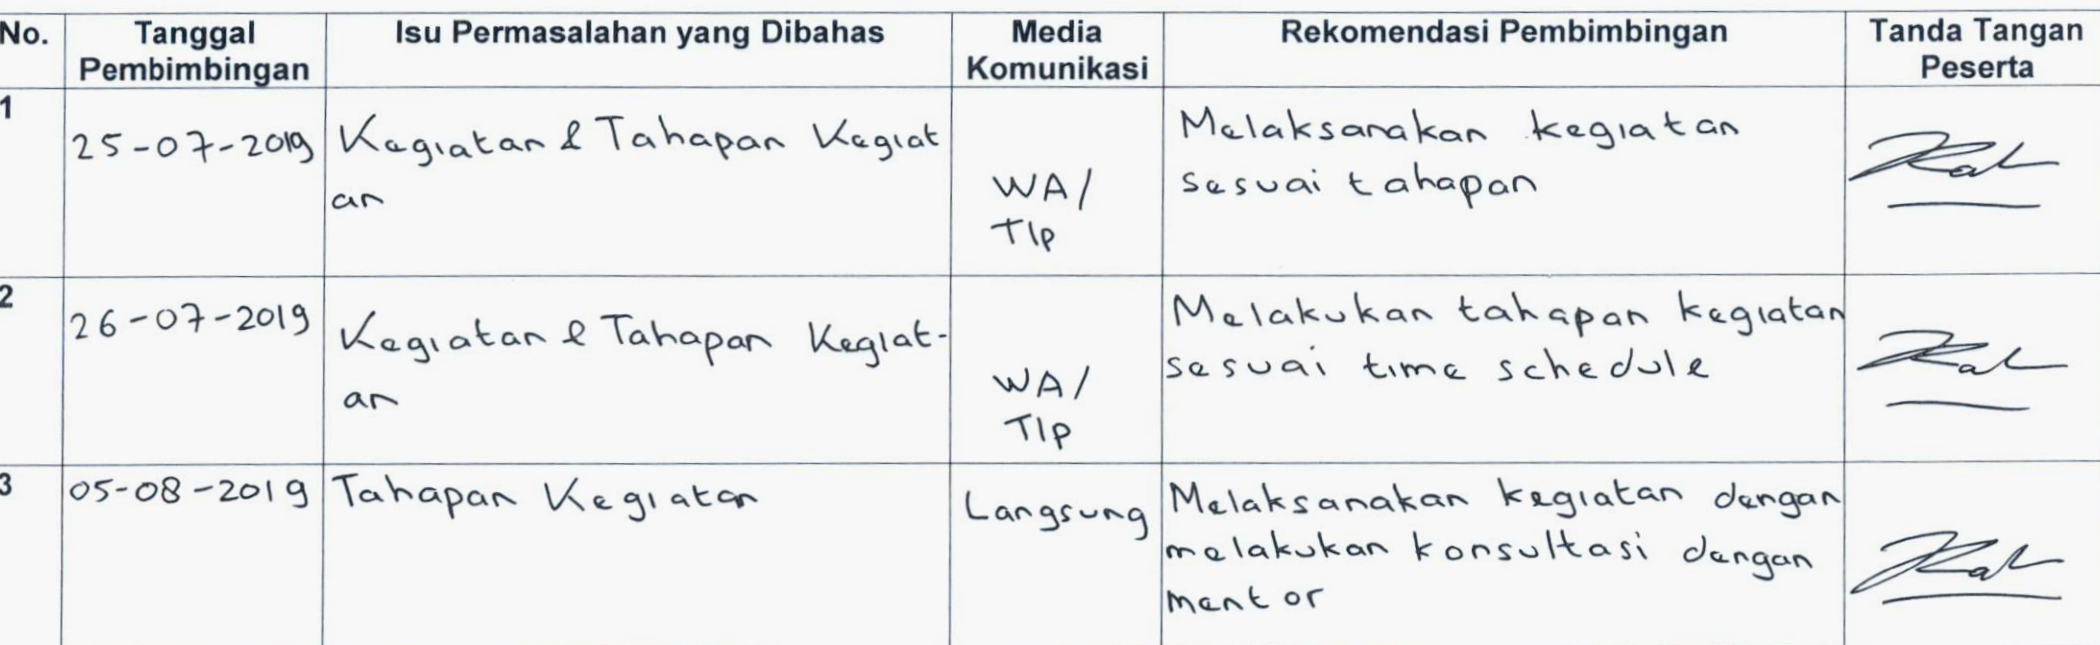 No.
Tanggal
Pembimbingan
Isu Permasalahan yang Dibahas
Media
Komunikasi
Rekomendasi Pembimbingan
Tanda Tangan
Peserta
1
25-07-2019
Kegiatan & Tahapan Kegiat
an
WA/
Tlp
Melaksanakan kegiatan
sesuai tahapan
2
26-07-2019
Kegiatan & Tahapan Kegiat-
an
WA/
Tlp
Melakukan tahapan kegiatan
sesuai time schedule
3
05-08-2019
Tahapan Kegiatan
Langsung
Melaksanakan kegiatan dengan
melakukan konsultasi dengan
mentor